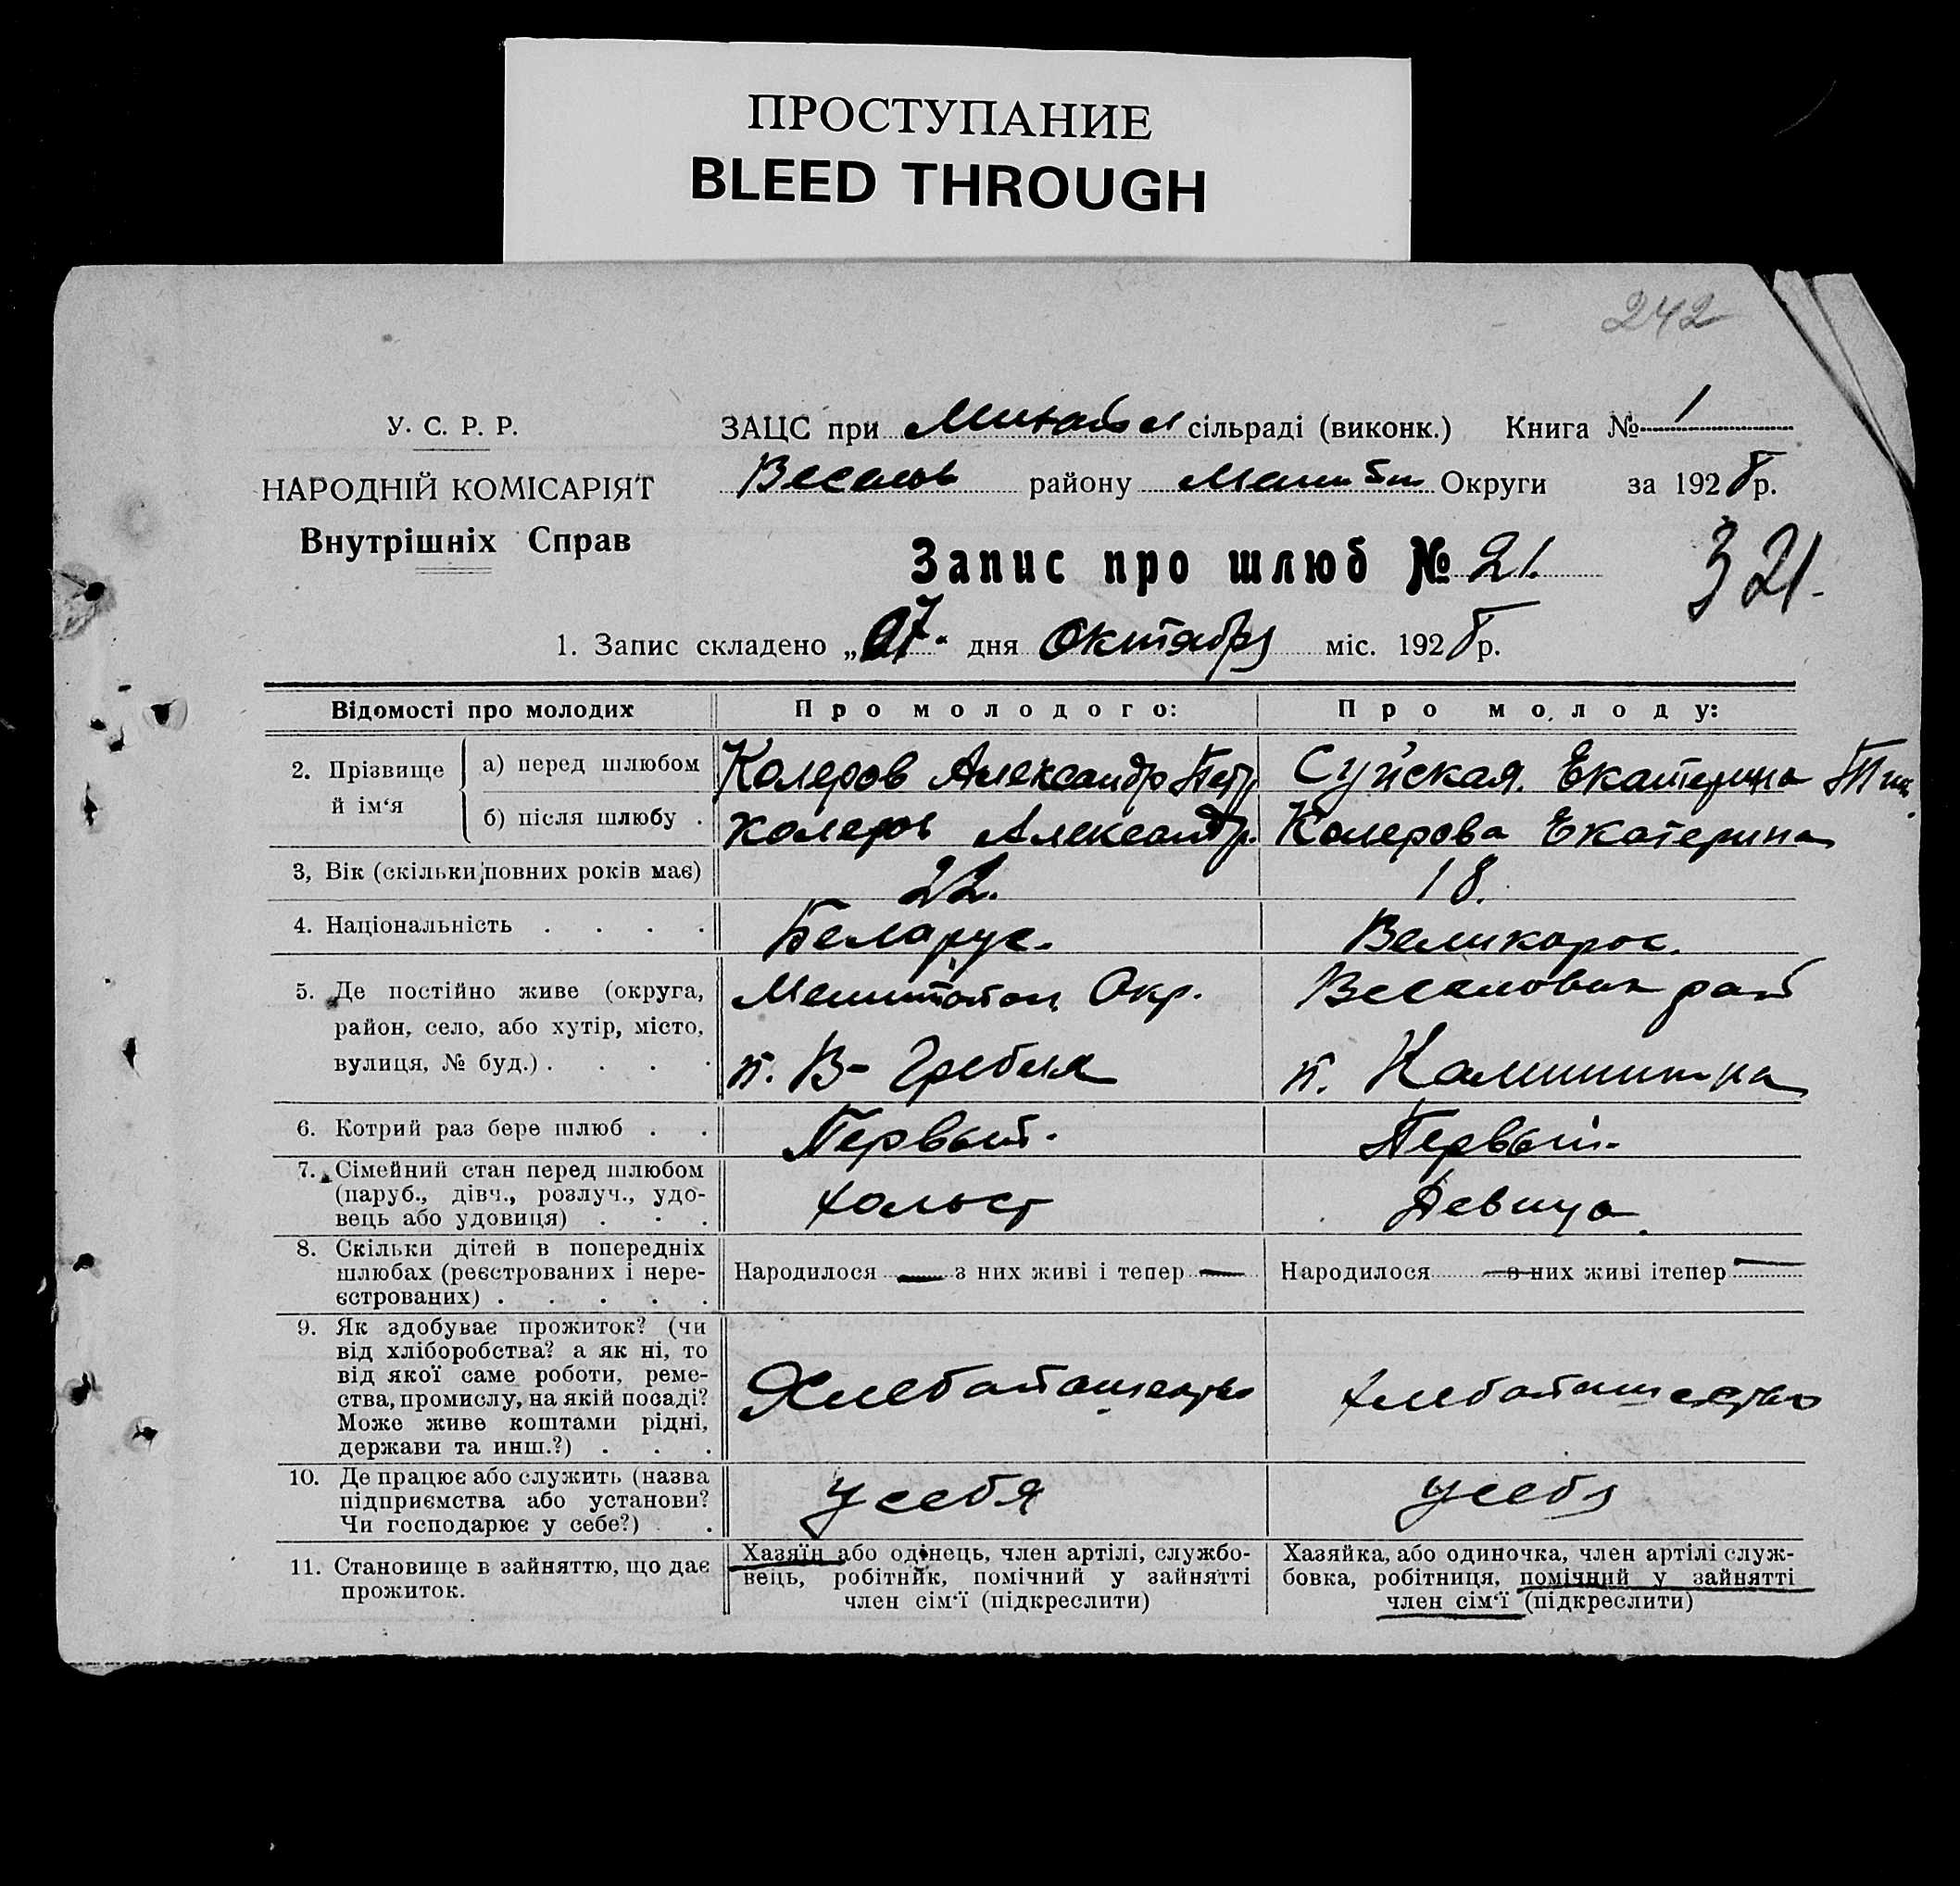 ПРОСТУПАНИЕ
BLEED THROUGH
242
У. С. Р. Р.
НАРОДНІЙ КОМІСАРІЯТ
Внутрішніх Справ
ЗАЦС при сільраді (виконк.) Книга № 1
Весело́в району Округи за 1928 р.
Запис про шлюб № 21. 321.
1. Запис складено „07“ дня Октября міс. 1928 р.
Відомості про молодих Про молодого: Про молоду:
2. Прізвище й ім‘я
а) перед шлюбом Колеров Александр Петр Суйская. Екатерина
б) після шлюбу . Колеров Александр. Колерова Екатерина
3, Вік (скільки повних років має) 22. 18.
4. Національність . . . . Беларус. Великорос.
5. Де постійно живе (округа,
район, село, або хутір, місто,
вулиця, № буд.) . . . .
Мелитопол Окр.
п. В- Гребля
Веселовск рай
п. Калининка
6. Котрий раз бере шлюб . . Первый. Первый.
7. Сімейний стан перед шлюбом
(паруб., дівч., розлуч., удо-
вець або удовиця) . . .
холост Девица
8. Скільки дітей в попередніх
шлюбах (реєстрованих і нере-
єстрованих) . . . . .
Народилося — з них живі і тепер —
Народилося — з них живі ітепер —
9. Як здобуває прожиток? (чи
від хліборобства? а як ні, то
від якої саме роботи, реме-
ства, промислу, на якій посаді?
Може живе коштами рідні,
держави та инш.?) . . .
Хлебопашество хлебопашество
10. Де працює або служить (назва
підприємства або установи?
Чи господарює у себе?) .
у себя у себя
11. Становище в зайняттю, що дає
прожиток.
Хазяїн або одінець, член артілі, службо-
вець, робітник, помічний у зайнятті
член сім‘ї (підкреслити)
Хазяйка, або одиночка, член артілі служ-
бовка, робітниця, помічний у зайнятті
член сім‘ї (підкреслити)